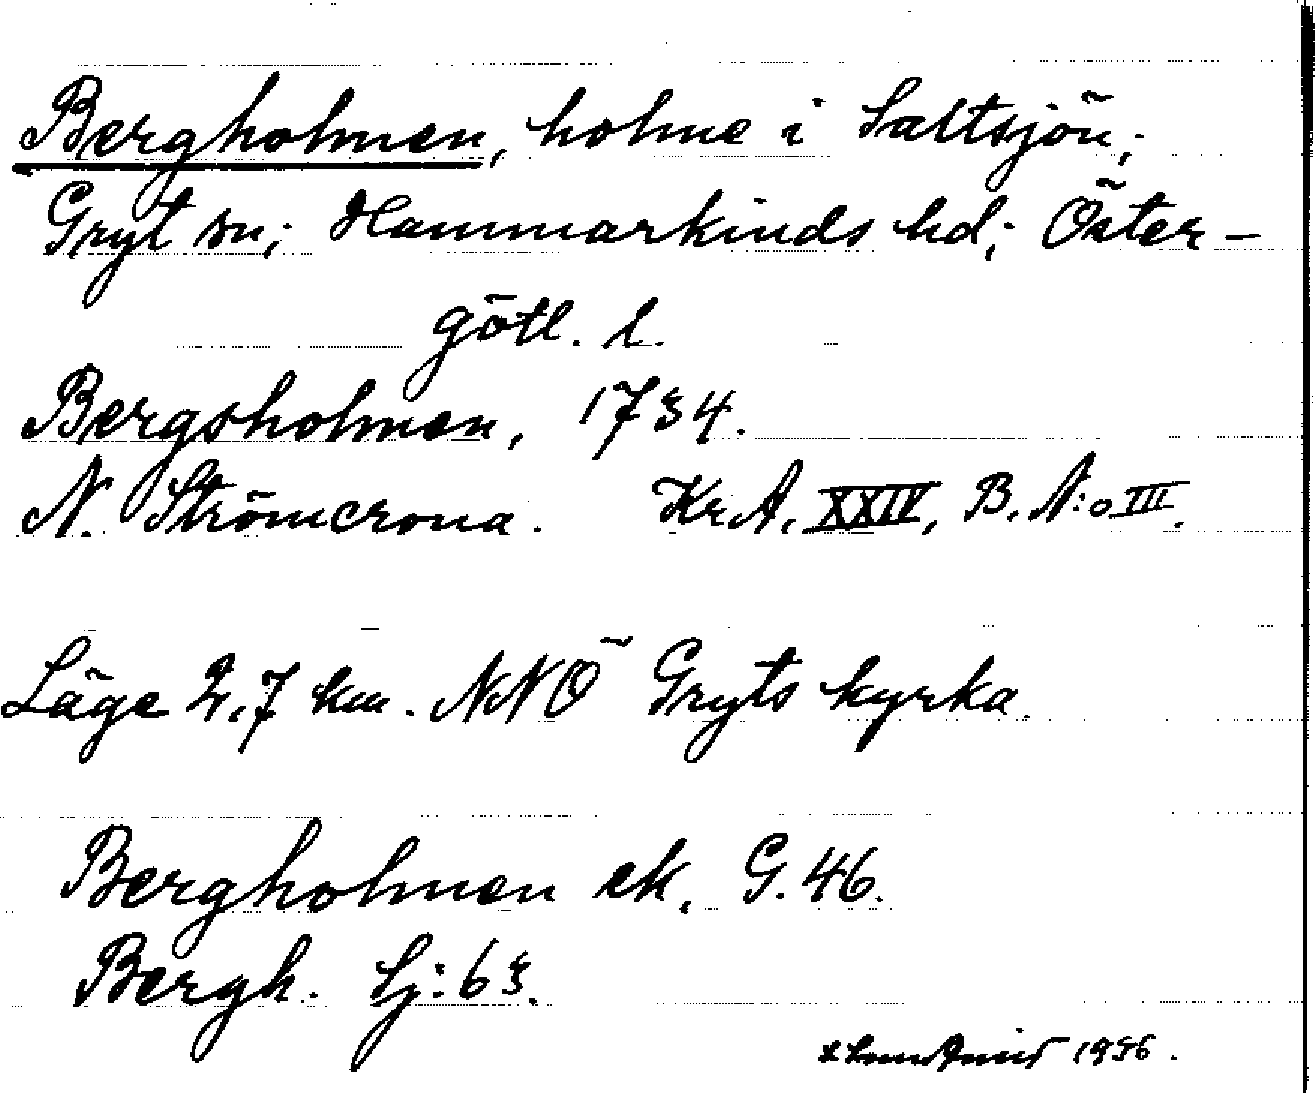 Bergholmen, holme i Saltsjön;
Gryt sn; Hammarkinds hd; Öster-
götl. l.
Bergsholmen, 1734.
N. Strömcrona. Kr A, XXIV, B. N:o III.
Läge 2,7 km. NNÖ Gryts kyrka.
Bergholmen ek. G. 46.
Bergh. Sj: 63.
1956.